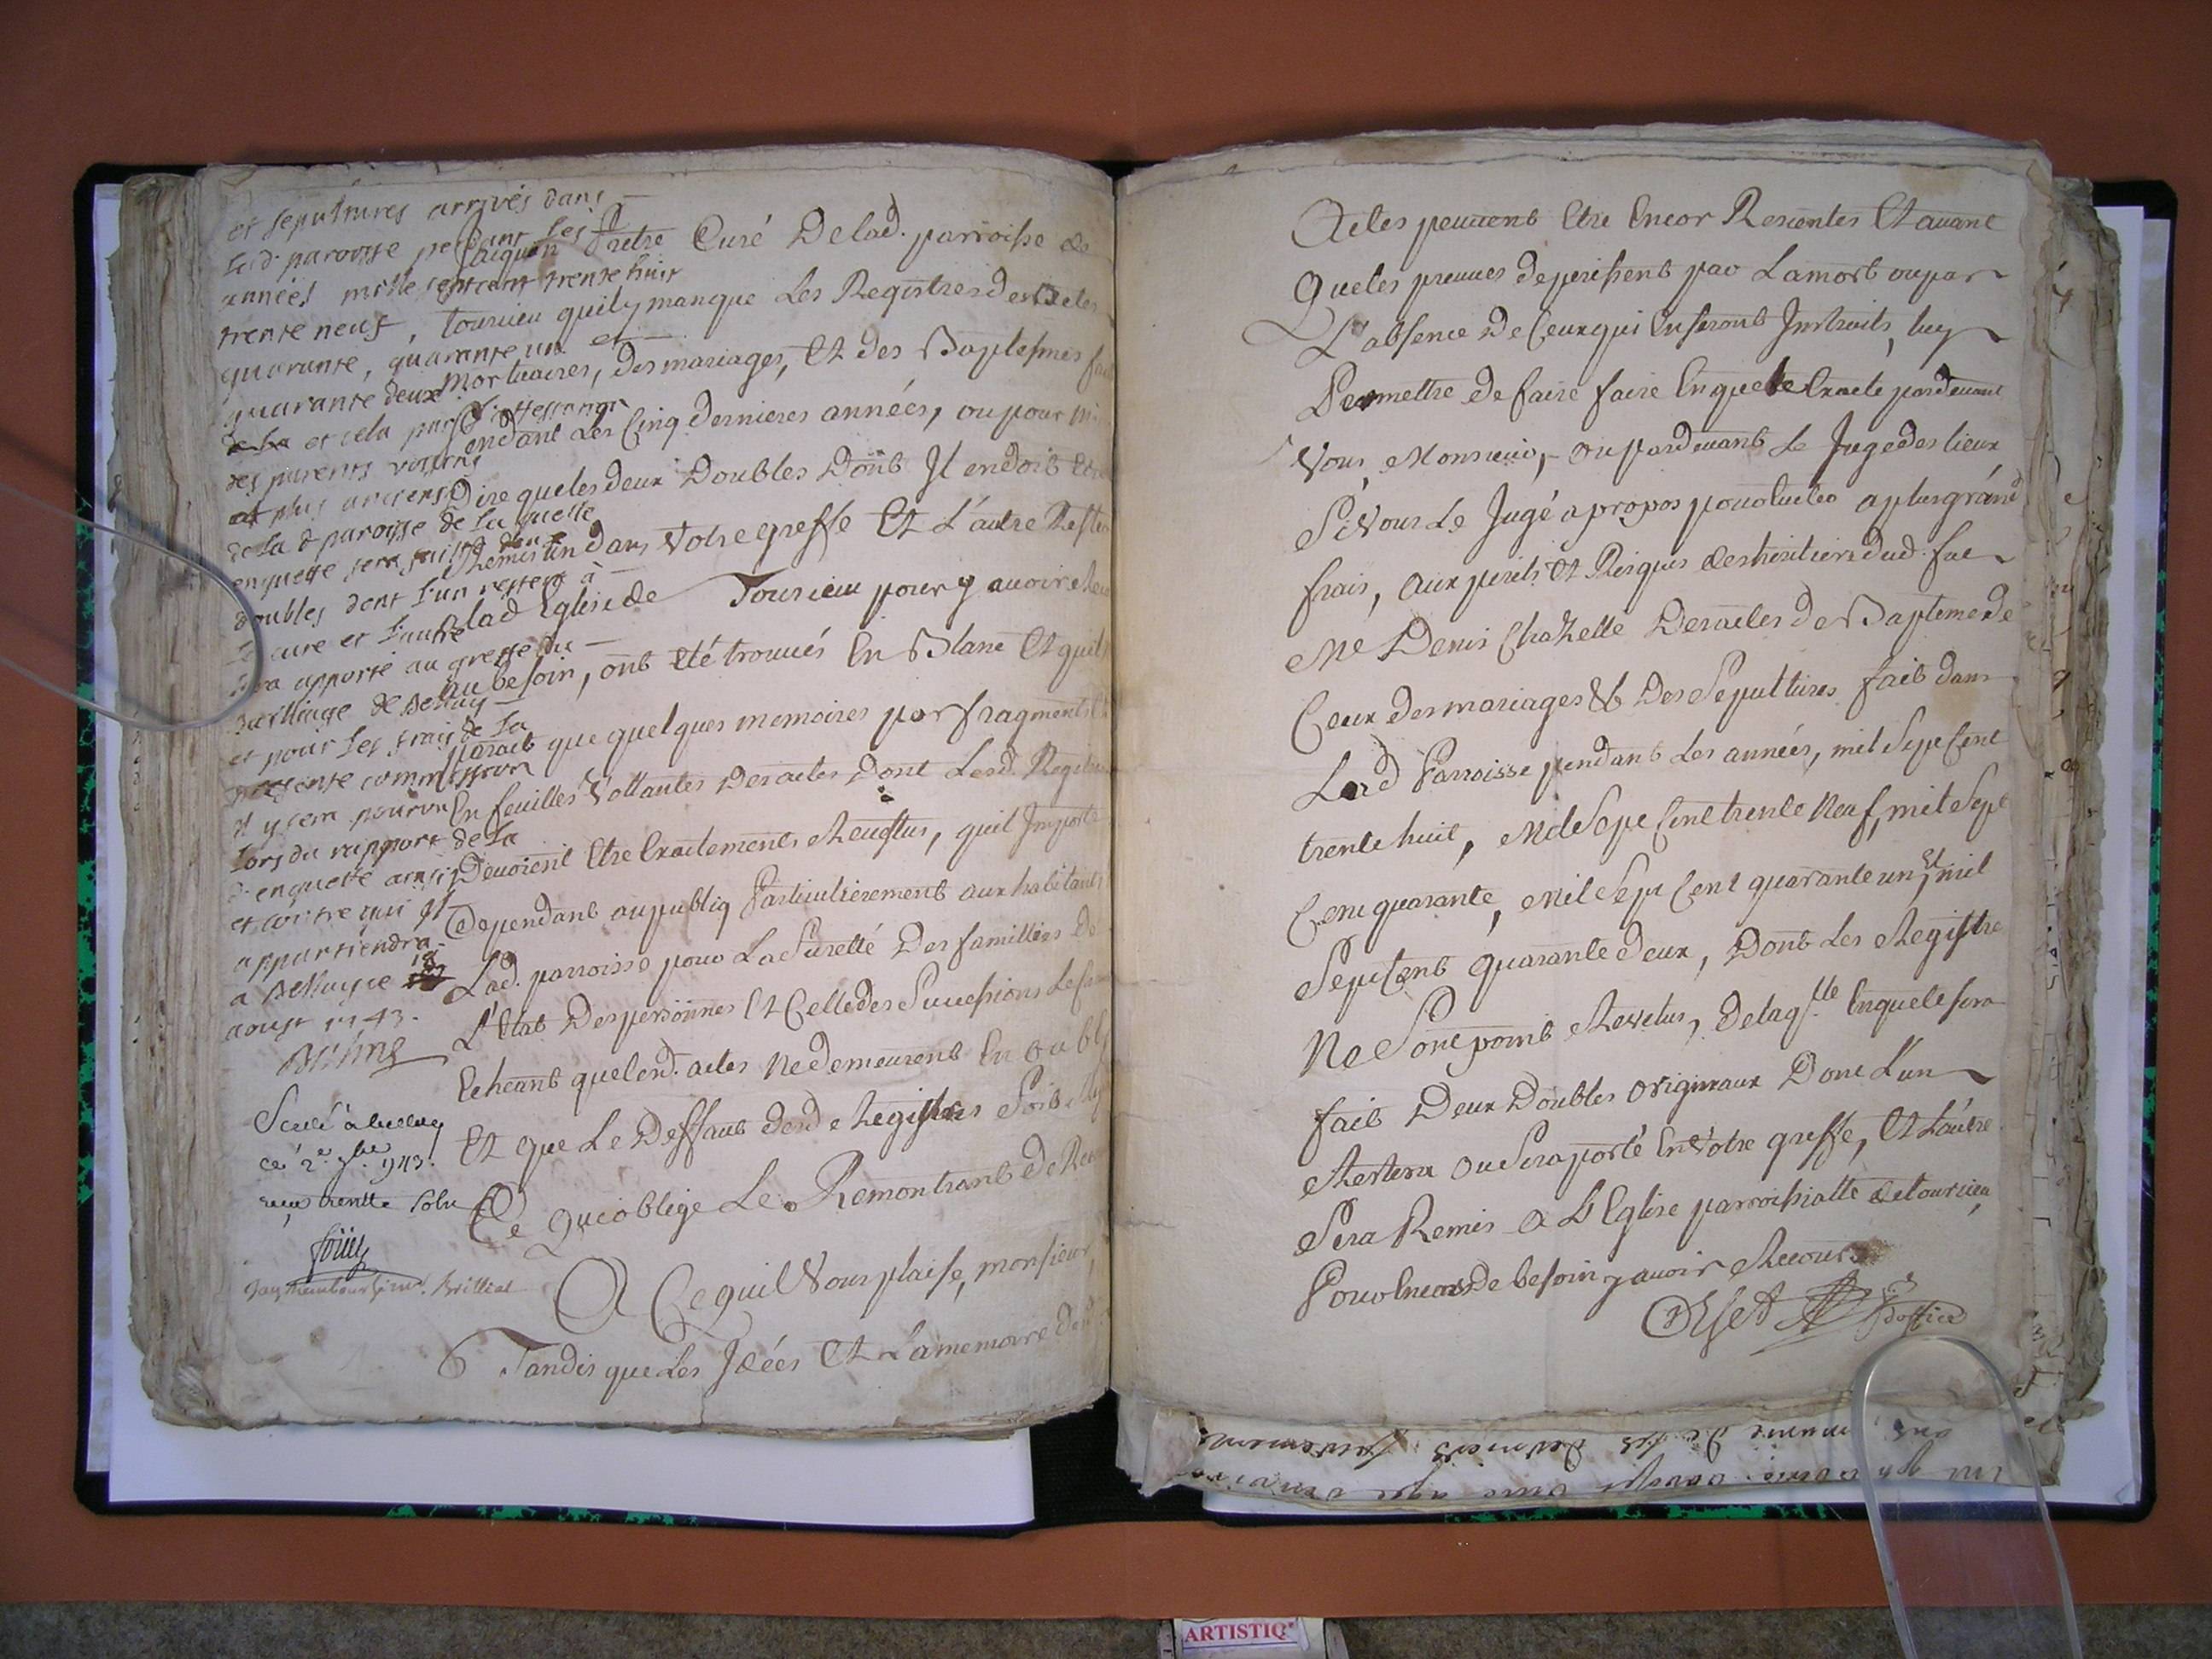 et sepultures arrivés dans
lad. paroisse pendant les
années mille sept cent trente huit
trente neuf,
quarante, quarante un et
quarante deux
et cela par
des parents voisins
et plus anciens
de la d paroisse de la quelle
enquette sera fait deux
doubles dont l'un restera à
le cure et l'autre
sera apporté au greffe du
bailliage de Bellay
et pour les frais de la
presente commission
il y sera pourvu
lors du rapport de la
d. enquette ainsi
et contre qui il
appartiendra
a Bellay ce 18
aoust 1743.
Scellé à
ce 2e 7bre 943.
reçu trentte sols
Brilliat
Faiquen Pretre Curé De lad. parroisse de
Tourieu quil y manque Les Registres des Actes
Mortuaires, des mariages, Et des Baptesmes fai
pendant Les Cinq dernieres années, ou pour
Dire que les deux Doubles Dont Il en doit Etre
Remis un dans Votre greffe Et L'autre Rester
lad Eglise de Tourieu pour y avoir
au besoin, ont Eté trouvés En Blanc Et quil
paroit que quelques memoires par fragments
En feuilles Vollantes Des actes Dont Lesd. Registres
Devoient Etre Exactements Revestus, quil Importe
Cependant au publiq Particulierement aux habitants
Lad. parroisse pour La Suretté Des familles De
L'Etat Des personnes Et Celle des Successions
Echeant que lesd. actes Ne demeurent En oubly
Et que Le Deffaut desd Registres Soit
Ce Qui oblige Le Remontrant De
A Ce quil Vous plaise, monsieur,
Tandis que Les Idées Et La memoire Desd
Actes peuvent Etre Encor Recentes Et avant
Que les preuves deperissent par La mort ou par
L'absence De Ceux qui En seront Instruits, luy
Permettre De faire faire Enquete Exacte pardevant
Vous, Monsieur, ou pardevant Le Juge des lieux
Si Vous Le Jugé a propos pour Eviter a plus grand
frais, aux perils Et Risques des heritiers dud. feu
Me Denis Chazelle Des actes De Bapteme De
Ceux Des mariages & Des Sepultures fait dans
Lad Parroisse pendant Les années, mil Sept Cent
trente huit, Mil Sept Cent trente Neuf, mil Sept
Cent quarante, Mil Sept Cent quarante un, Et mil
Sept Cent quarante Deux, Dont Les Registre
Ne Sont point Revetus, De laqlle Enquete sera
fait Deux Doubles originaux Dont L'un
Restera ou Sera porté En Votre greffe, Et L'autre
Sera Remis a L'Eglise parroissialle de tourieu,
Pour En Cas De besoin y avoir Recours
Orset Pr d'office